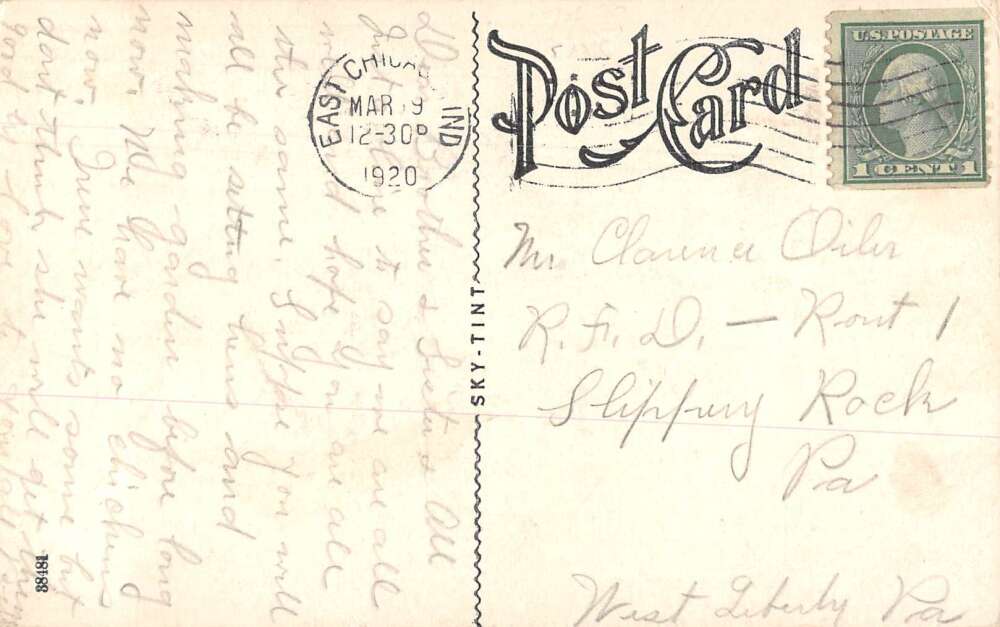 Post Card
U.S. POSTAGE
1 CENT 1
EAST CHICAGO IND
MAR 9
12-30P
1920
SKY-TINT
38481
Mr Clarence Oiler
R. F. D. — Rout 1
Slippery Rock
Pa
West Liberty Pa
Dear Brother & Sister & All
Just a line to say we are all
well and hope you are all
the same. I suppose you will
all be setting hens and
making garden before long
now. We have no chickens
now, June wants some but
dont think she will get them
good by love to you all